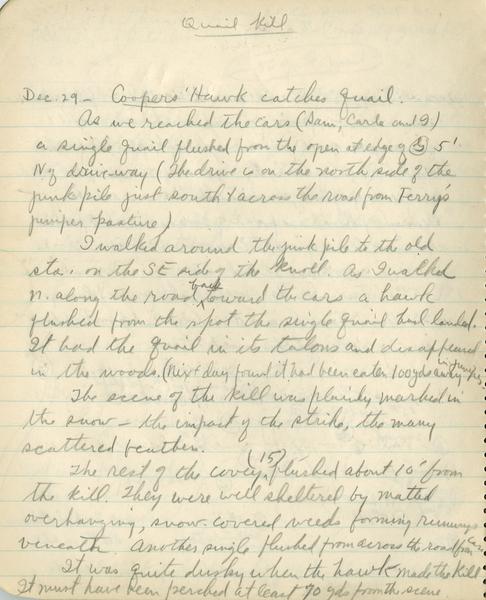 Quail Kill
Dec. 29 - Coopers' Hawk catches Quail.
As we reached the cars (Dam, Carla and I)
a single Quail flushed from the open at edge of 5'
N of driveway (The drive is on the north side of the
junk pile just south & across the road from Ferry's
juniper pasture)
I walked around the junk pile to the old
sta. on the SE side of the knoll. As I walked
n. along the road back toward the cars a hawk
flushed from the spot the single quail had landed.
It had the quail in its talons and disappeared
in the woods. (Next day found it had been eaten 100 yds away in
The scene of the kill was plainly marked in
the snow - the impact of the strike, the many
scattered feathers.
The rest of the covey (15) flushed about 10' from
the kill. They were well sheltered by matted
overhanging, snow-covered weeds forming runways
beneath. Another single flushed from across the road from
It was quite dusky when the hawk made the kill
It must have been perched at least 70 yds from the scene.